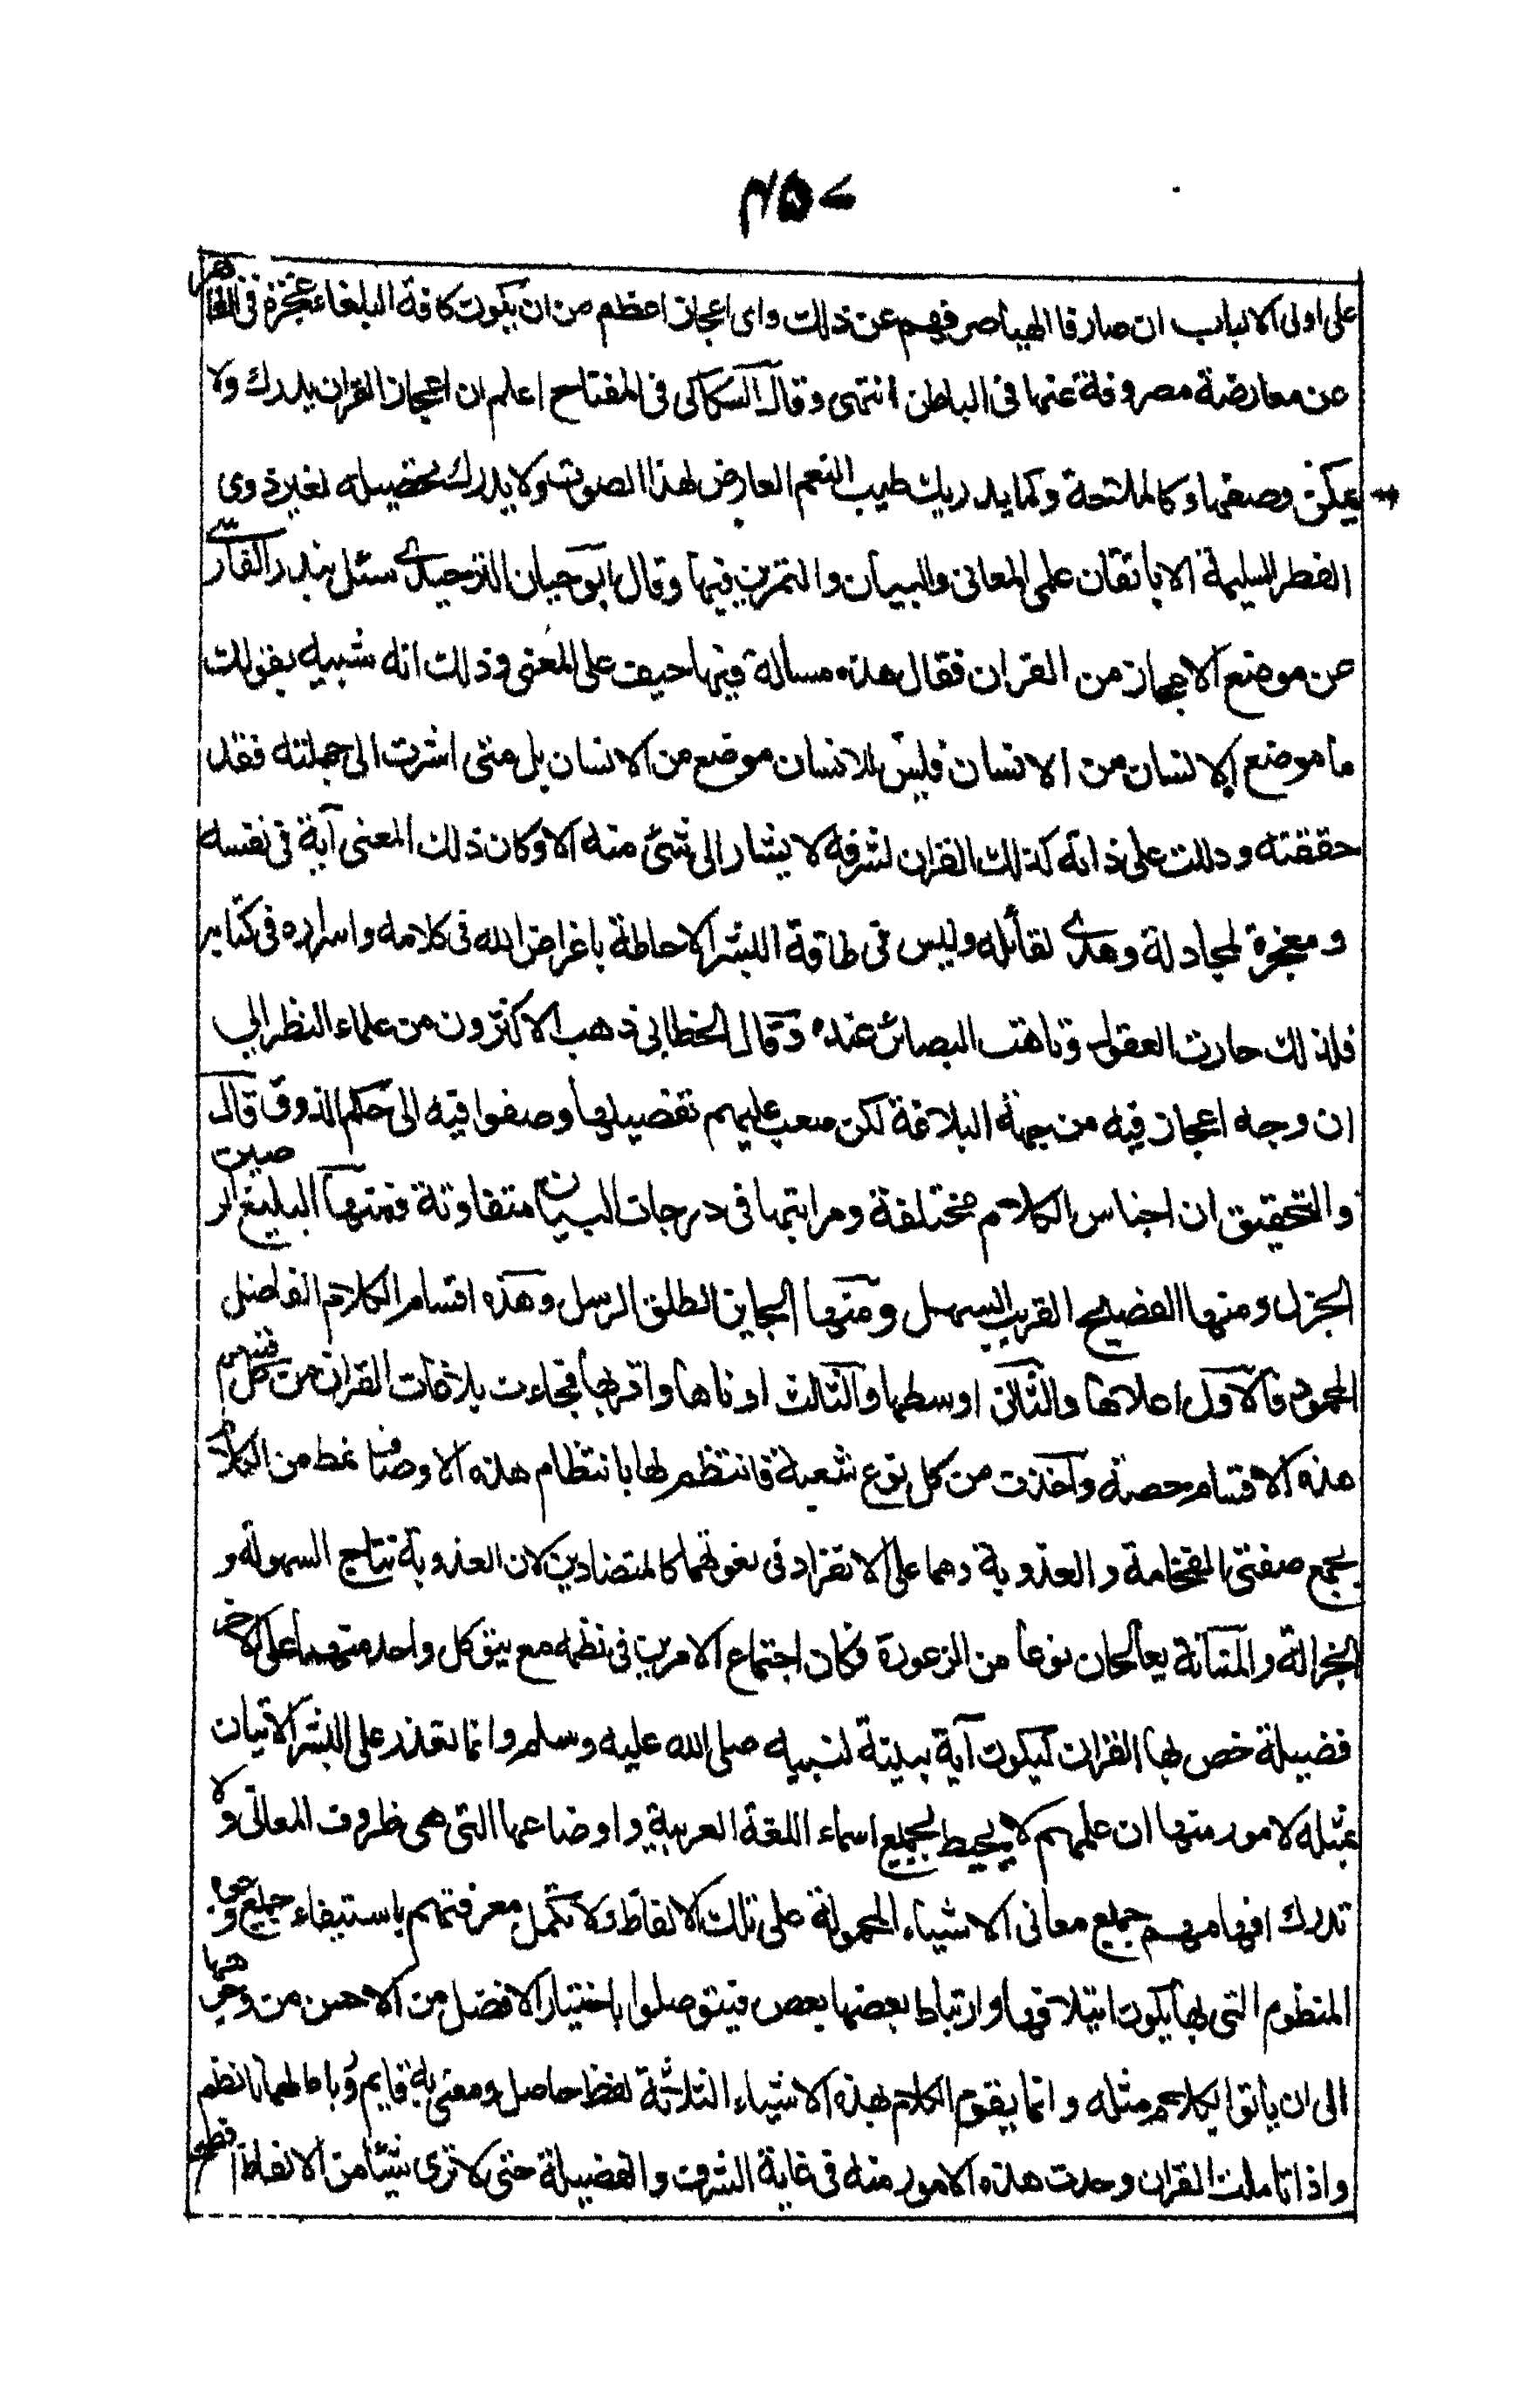 ٤٥٧
على اولى الالباب ان صارفا الهيا صرفهم عن ذلك واى اعجاز اعظم من ان يكون كافة البلغاء عجزة فى الظاهر
عن معارضة مصروفة عنها فى الباطن انتهى وقال السكاكى فى المفتاح اعلم ان اعجاز القران يدرك ولا
يمكن وصفها وكالملتحة وكما يدريك طيب النعم العارض لهذا الصوت ولا يدرك تحصيله لغير ذوى
الفطر السليمة الا باتقان علمى المعانى والبيان والتمرين فيها وقال ابو حيان التوحيدى سئل بندر القارسى
عن موضع الاعجاز من القران فقال هذه مسالة فيها حيف على المعنى وذلك انه شبيه بقولك
ما موضع الانسان من الانسان فليس للانسان موضع من الانسان بل متى اشرت الى جملته فقد
حققته ودللت على ذاته كذلك القران لشرفه لا يشار الى شئ منه الا وكان ذلك المعنى آية فى نفسه
ومعجزة لمجادلة وهدى لقائله وليس فى طاقة البشر الاحاطة باغراض الله فى كلامه واسراره فى كتابه
فلذلك حارت العقول وتاهت البصائر عنده وقال الخطابى ذهب الاكثرون من علماء النظر الى
ان وجه اعجاز فيه من جهة البلاغة لكن صعب عليهم تفصيلها وصفوا فيه الى حكم الذوق قال
والتحقيق ان اجناس الكلام مختلفة ومراتبها فى درجات البيان متفاوتة فمنها البليغ الرصين
الجزل ومنها الفصيح القريب السهل ومنها الجايز الطلق الرسل وهذه اقسام الكلام الفاضل
المحمود فالاول اعلاها والثانى اوسطها والثالث ادناها واقربها فجاءت بلاغات القران من كل قسم من
هذه الاقسام حصة واخذت من كل نوع شعبة فانتظم لها بانتظام هذه الاوصاف نمط من الكلام
يجمع صفتى الفخامة والعذوبة وهما على الانفراد فى نعوتهما كالمتضادين لان العذوبة نتاج السهولة و
الجزالة والمتانة يعالجان نوعا من الزعورة فكان اجتماع الامرين فى نظمه مع نبو كل واحد منهما على الاخر
فضيلة خص بها القران ليكون آية بينة لنبيه صلى الله عليه وسلم وانما تعذر على البشر الاتيان
بمثله لامور منها ان علمهم لا يحيط بجميع اسماء اللغة العربية واوضاعها التى هى ظروف المعانى ولا
تدرك افهامهم جميع معانى الاشياء المحمولة على تلك الالفاظ ولا تكمل معرفتهم باستيفاء جميع وجوه
المنظوم التى بها يكون ايتلافها وارتباط بعضها ببعض فيتوصلوا باختيار الافضل من الاحسن من وجوهها
الى ان ياتوا بكلام مثله وانما يقوم الكلام بهذه الاشياء الثلاثة لفظ حاصل ومعنى به قايم ورباط لهما ناظم
واذا تاملت القران وجدت هذه الامور منه فى غاية الشرف والفضيلة حتى لا ترى شيئا من الالفاظ افصح